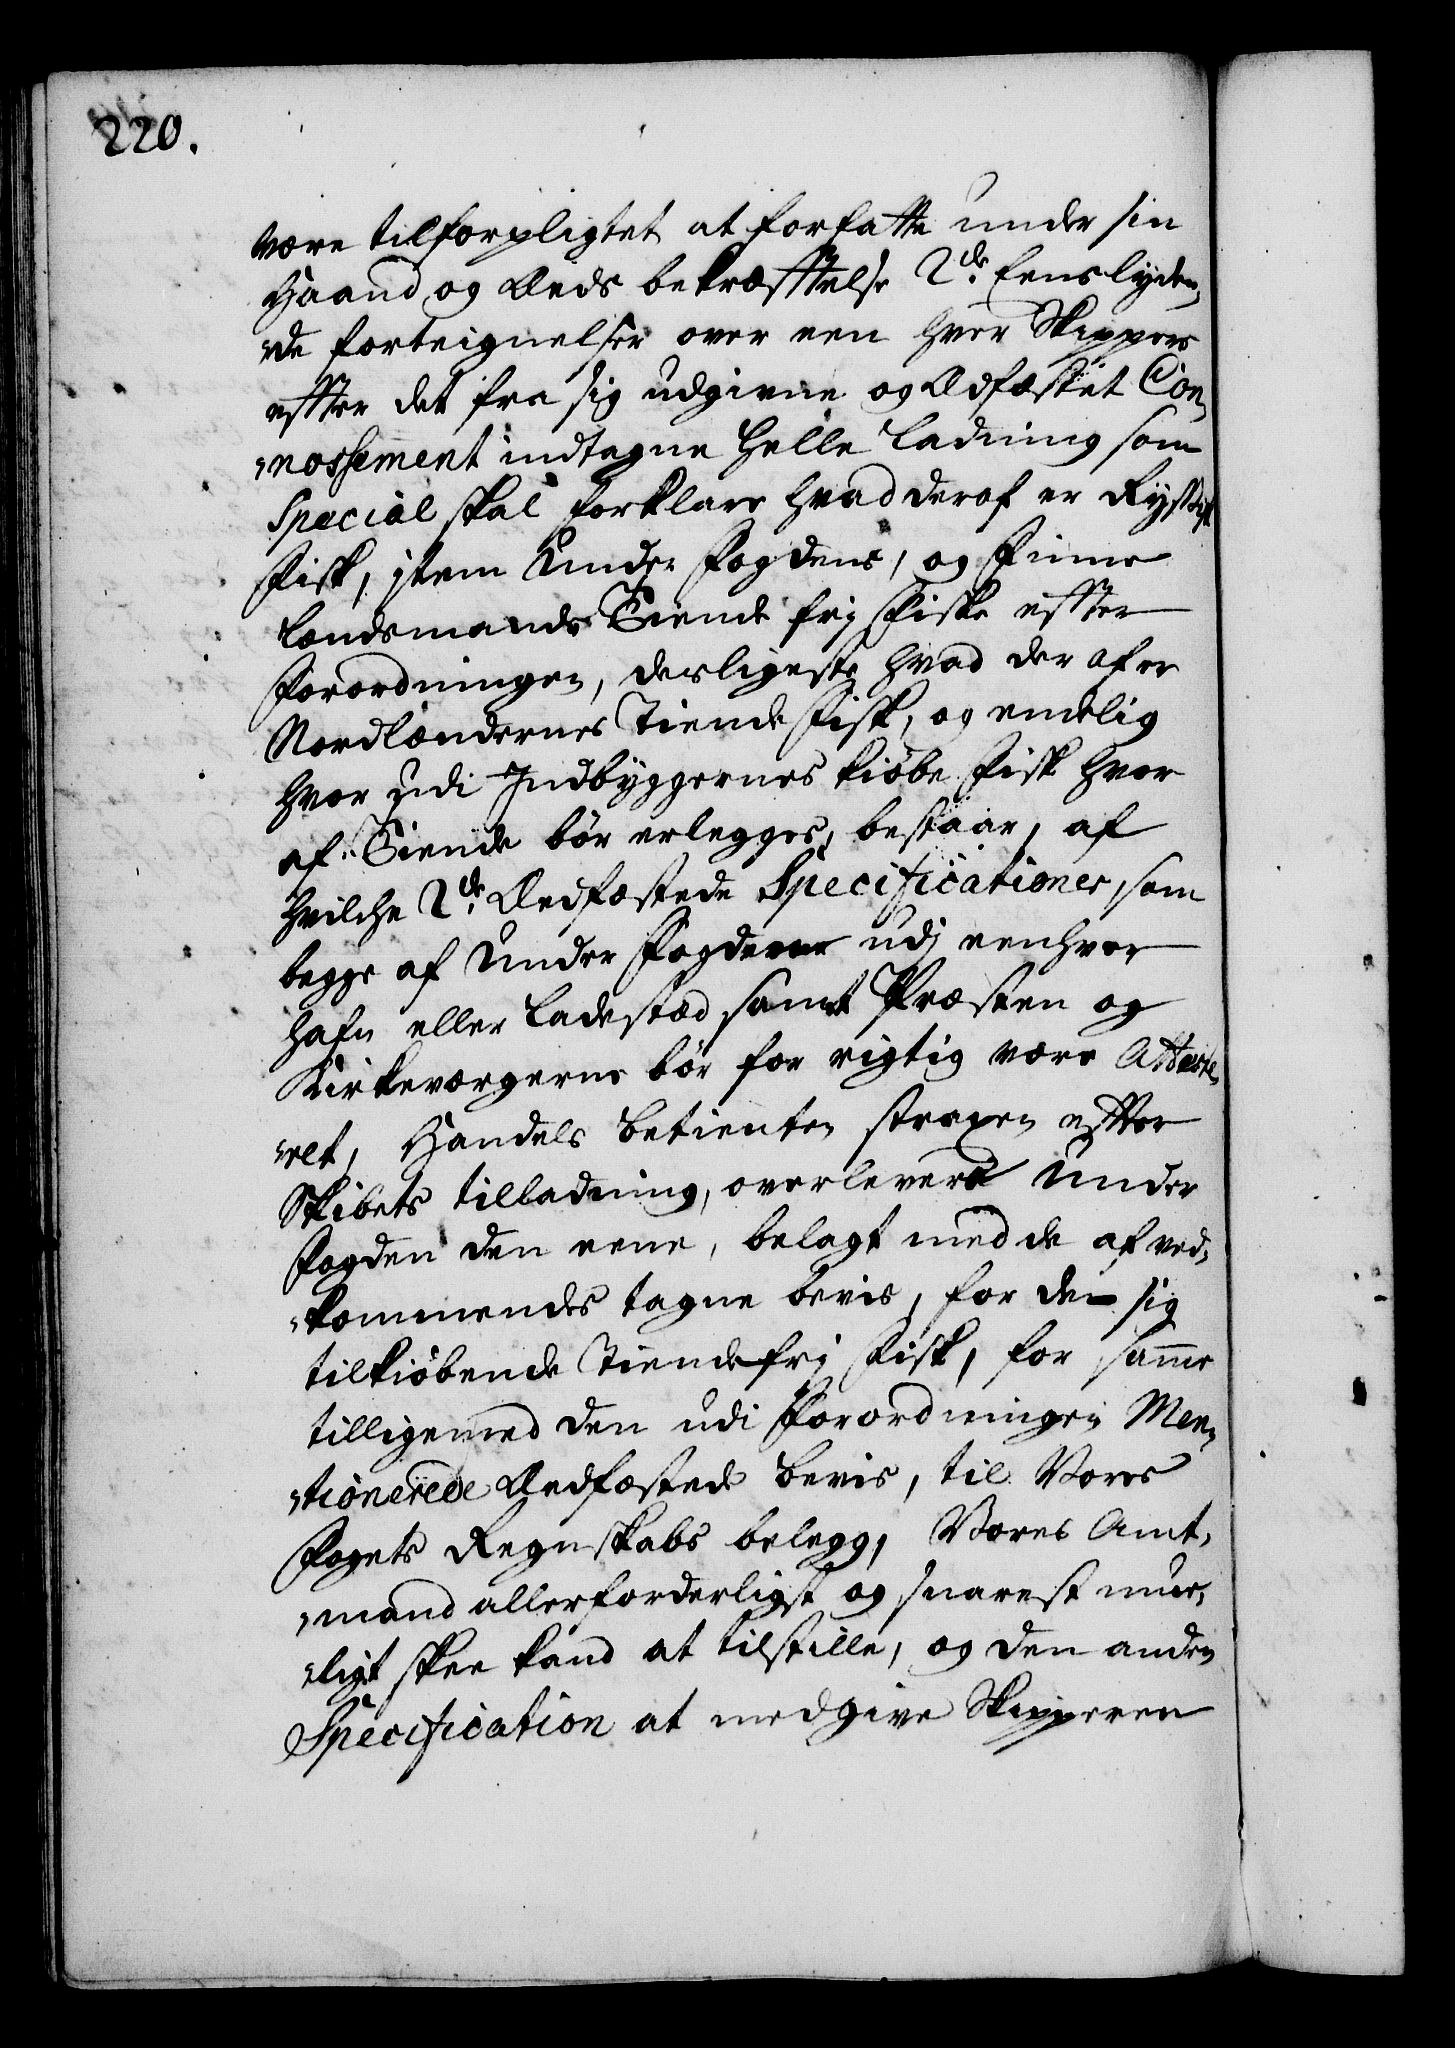 220.
være tilforpligtet at forfatte under sin
Haand og Æeds bekræfftelse 2de Eenslyden,
„de forteignelser over een hver Skippers
effter det fra sig udgivne og Ædfæstet Con„
„nossement indtagne heele Ladning som
Special skal forklare hvad deraf er Ryss
Fisk, jtem Under Fogdens, og Finne
Landsmands Tiende frj Fiske effter
Forordningen, desligeste hvad der af er
Nordlændernes Tiende Fisk, og endelig
hvor udi Indbyggernes Kiøbe Fisk hvor
af Tiende bør erlegges, bestaar, af
hvilche 2de Æedfæstede Specificationer, som
begge af Under Fogderne udj eenhver
hafn eller Ladestæd samt Præsten og
Kirkeværgerne bør for rigtig være Atteste„
„ret, Handels Betienten straxen effter
Skibets tilladning, overleverd Under
Fogden den eene, belagt med de af ved„
„kommendes tagne bevis, for den sig
tilkiøbende Tiendefrj Fisk, for samme
tilligemed den udi Forordningen Men„
„tionerede Æedfæstede bevis, til Vores
Fogets Regnskabs belegg, Vores Amt„
„mand allerforderligst og snarest mue„
„ligt skee kand at tilstille, og den anden
Specification at medgive Skipperen